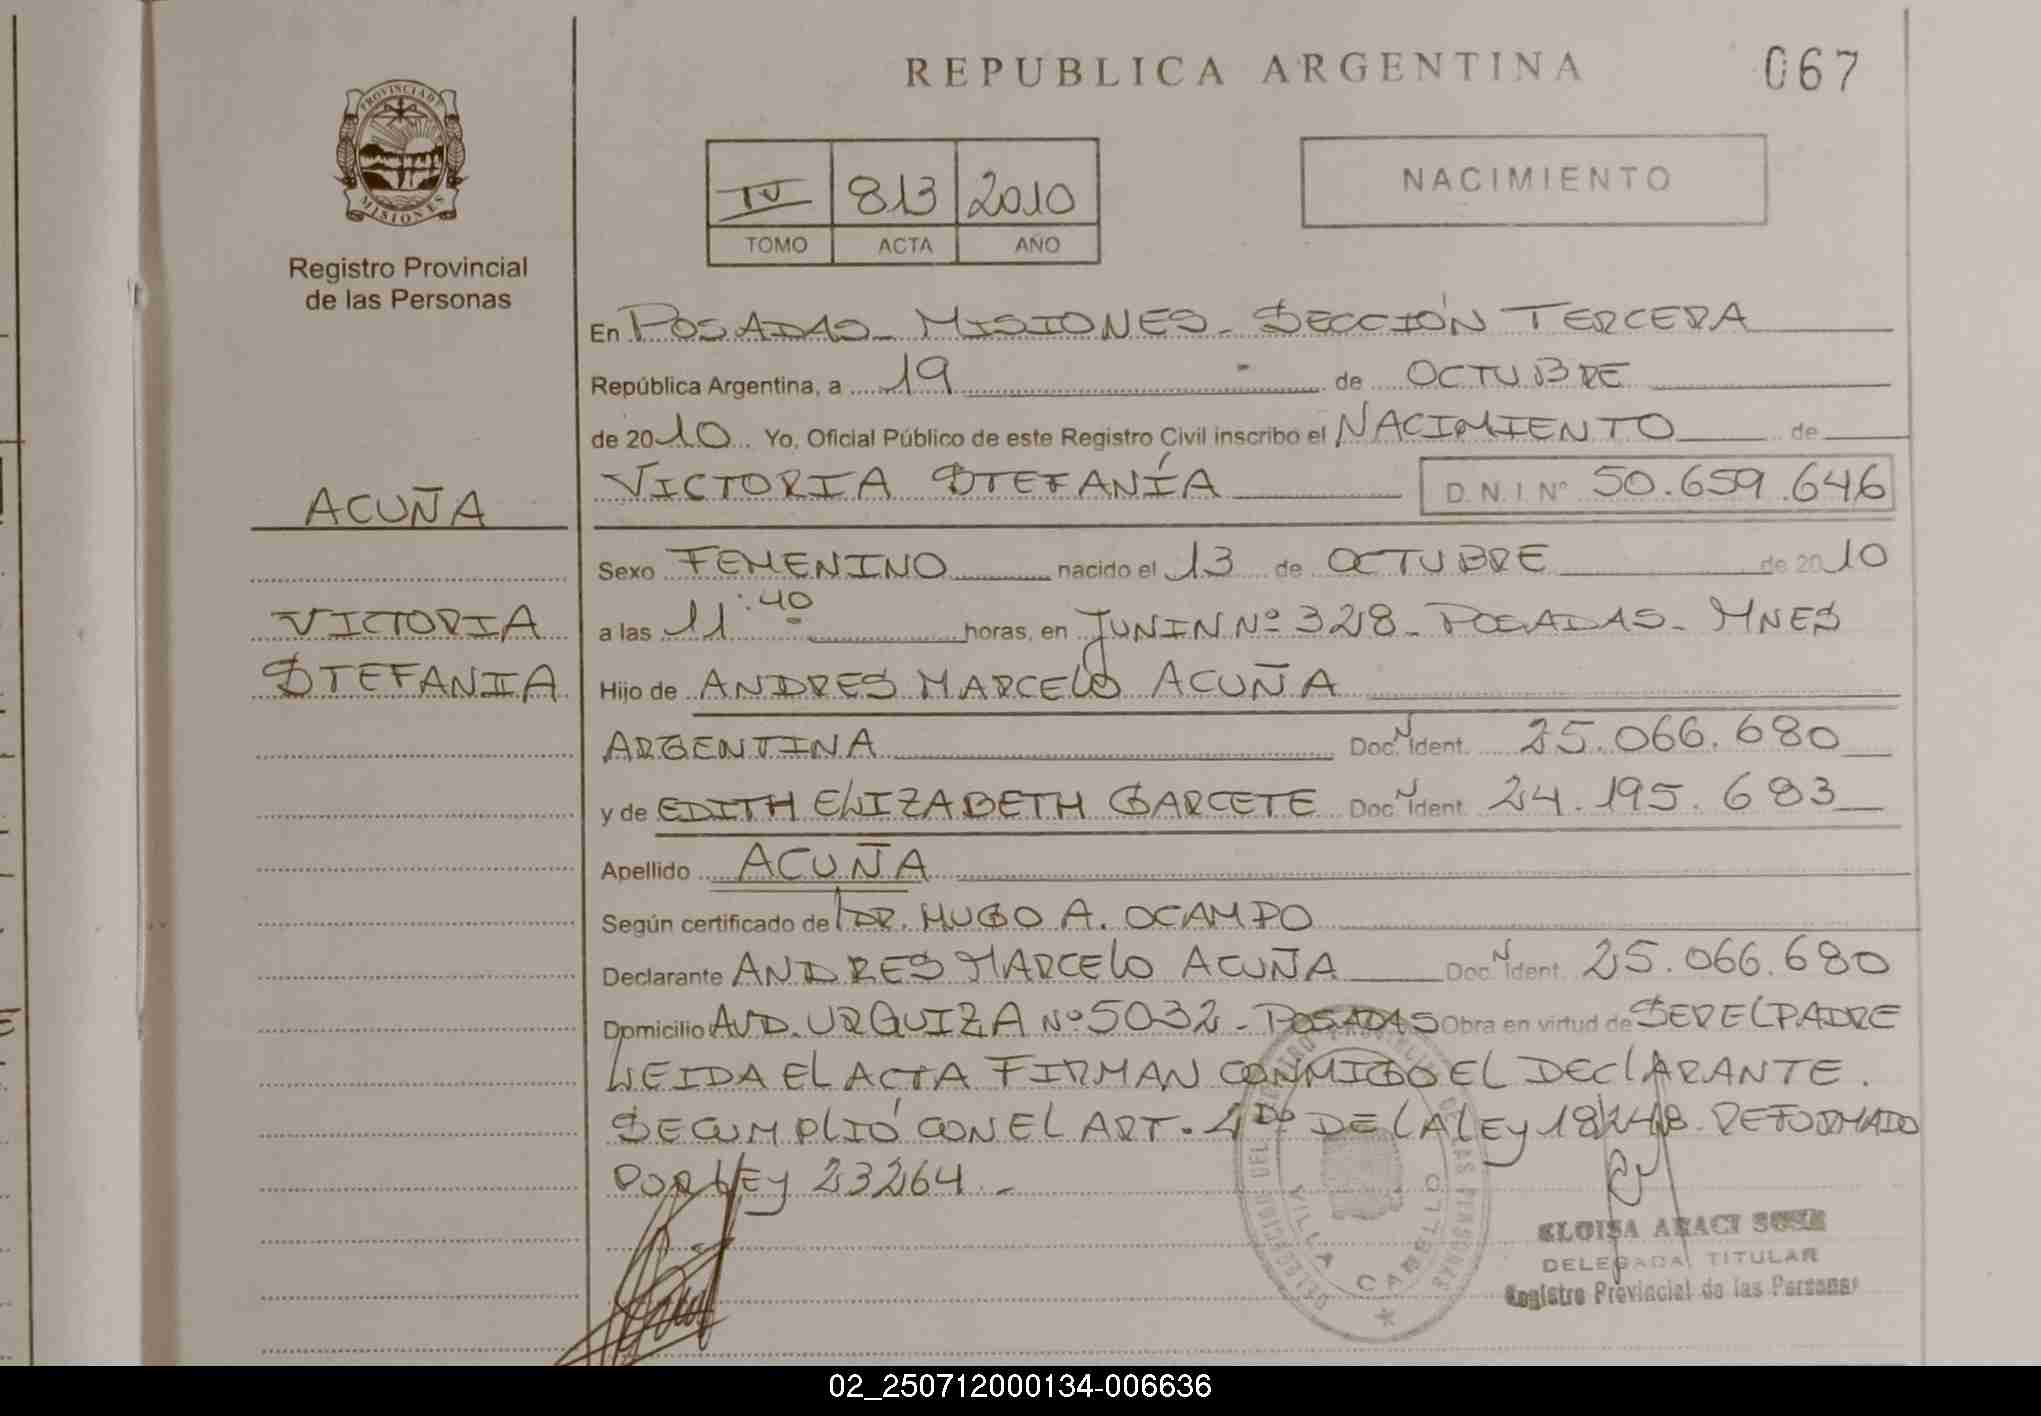 REPUBLICA ARGENTINA
067
PROVINCIA DE
MISIONES
Registro Provincial
de las Personas
IV 813 2010
TOMO ACTA AÑO
NACIMIENTO
En POSADAS - MISIONES - SECCIÓN TERCERA
República Argentina, a 19 de OCTUBRE
de 2010 Yo, Oficial Público de este Registro Civil inscribo el NACIMIENTO de
VICTORIA STEFANÍA D.N.I Nº 50.659.646
ACUÑA
VICTORIA
STEFANIA
Sexo FEMENINO nacido el 13 de OCTUBRE de 2010
a las 11:40 horas, en JUNIN Nº 328 - POSADAS - MNES
Hijo de ANDRES MARCELO ACUÑA
ARGENTINA Doc. Ident. 25.066.680
y de EDITH ELIZABETH GARCETE Doc. Ident. 24.195.683
Apellido ACUÑA
Según certificado de DR. HUGO A. OCAMPO
Declarante ANDRES MARCELO ACUÑA Doc. Ident. 25.066.680
Domicilio AVD. URQUIZA Nº 5032 - POSADAS Obra en virtud de SER EL PADRE
LEIDA EL ACTA FIRMAN CONMIGO EL DECLARANTE.
SE CUMPLIÓ CON EL ART. DE LA LEY 18248 REFORMADO
POR LEY 23264 -
VILLA CABELLO
ELOISA ARACI SOSA
DELEGADA TITULAR
Registro Provincial de las Personas
02_250712000134-006636